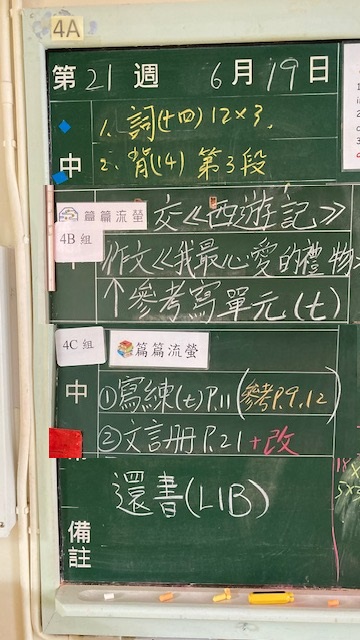 4A
第21週 6月19日
中
1. 詞(十四)12×3.
2. 背(14) 第3段
篇篇流螢 交《西遊記》
4B 組
作文《我最心愛的禮物》
↑參考寫單元(七)
4C 組 篇篇流螢
中
①寫練(七)P.11(參考P.9,12)
②文言冊P.21+改
備註
還書(LIB)